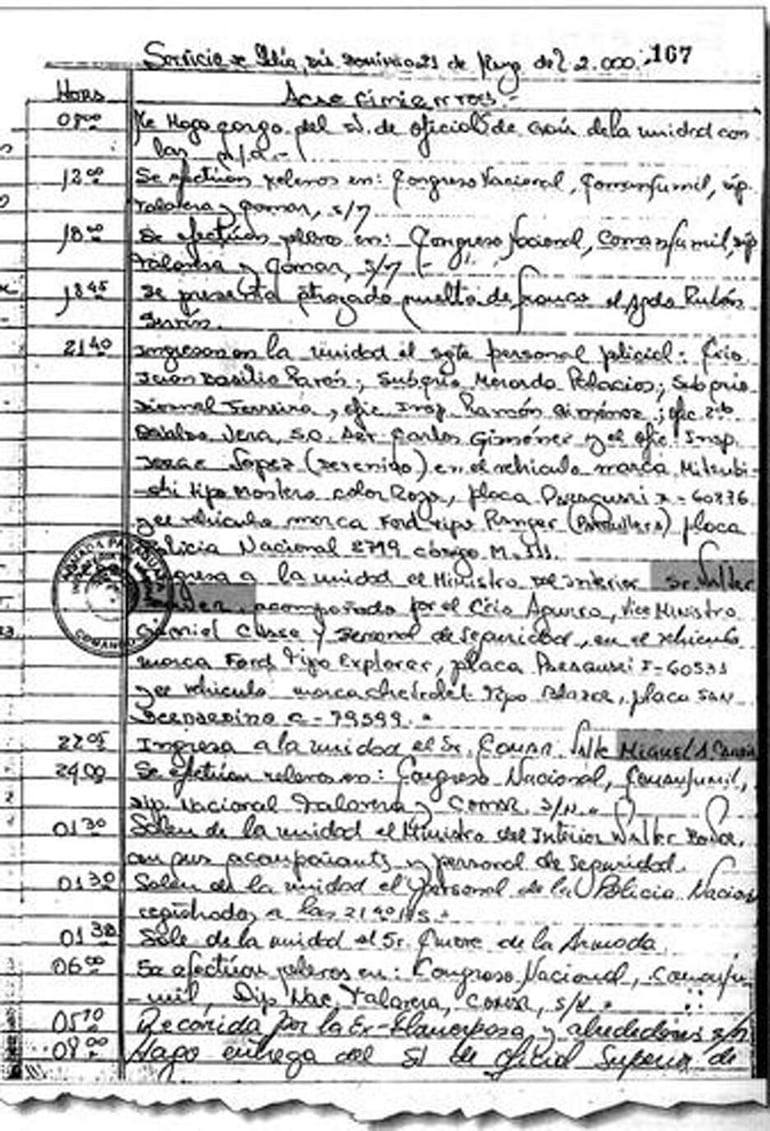 Servicio de Día, domingo 21 de Mayo del 2.000. 167
HORS Acaecimientos.-
08⁰⁰ Me Hago cargo del S/. de oficial de de la unidad con
las
12⁰⁰ Se efectúan relevos en: Congreso Nacional, Comanfumil, Dip.
Talavera y Comar, S/N
18⁰⁰ Se efectúan relevos en: Congreso Nacional, Comanfumil, Dip
Talavera y Comar, S/N
18⁴⁵ Se presenta atrazado vuelta de franco el Rubén
21⁴⁰ Ingresan en la unidad el sgte personal policial: Crio
Juan Basilio Pavón; Subcrio Merardo Palacios; Subcrio
Ferreira, Ofic. Insp. Ramón Giménez; Ofic. 2do
Osvaldo Vera, S.O. Carlos Giménez y el Ofic. Insp.
Jorge López (detenido) en el vehículo marca Mitsubi-
-shi tipo Montero color Rojo, placa Paraguarí 60836
y el vehículo marca Ford tipo Ranger (Patrullera) placa
Policia Nacional 2749 cargo M.III.
Ingresa a la unidad el Ministro del Interior Sr. Walter
Bower, acompañado por el Crio Aguero, Vice Ministro
y Personal de Seguridad, en el vehículo
marca Ford Tipo Explorer, placa Paraguarí F-60531
y el vehículo marca chevrolet Tipo Blazer, placa SAN
Bernardino C-79599.
22⁰⁵ Ingresa a la unidad el Sr. COMAR Miguel A.
24⁰⁰ Se efectúan relevos en: Congreso Nacional, Comanfumil,
Dip. Nacional Talavera y COMAR, S/N.
01³⁰ Salen de la unidad el Ministro del Interior Walter Bower,
con sus acompañants y personal de Seguridad.
01³⁰ Salen de la unidad el personal de la Policia Nacion
registradas a las 21⁴⁰ HS.
01³⁸ Sale de la unidad el Sr. Cmdte de la Armada
06⁰⁰ Se efectúan relevos en: Congreso Nacional, Comanfu-
-mil, Dip. Nac. Talavera, COMAR, S/N.
05¹⁰ Recorrida por la Ex- y alrededores S/N
08⁰⁰ Hago entrega del S/ de Oficial Superior de
ARMADA PARAGUAYA
COMANDO